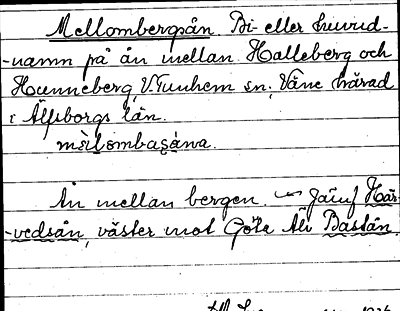 Mellombergsån. Bi- eller huvud-
-namn på ån mellan Halleberg och
Hunneberg, V. Tunhem sn; Väne härad
i Älfsborgs län.
mèlombasåna.
Ån mellan bergen. — Jämf Här-
-vedsån, väster mot Göta Älv Bastån.